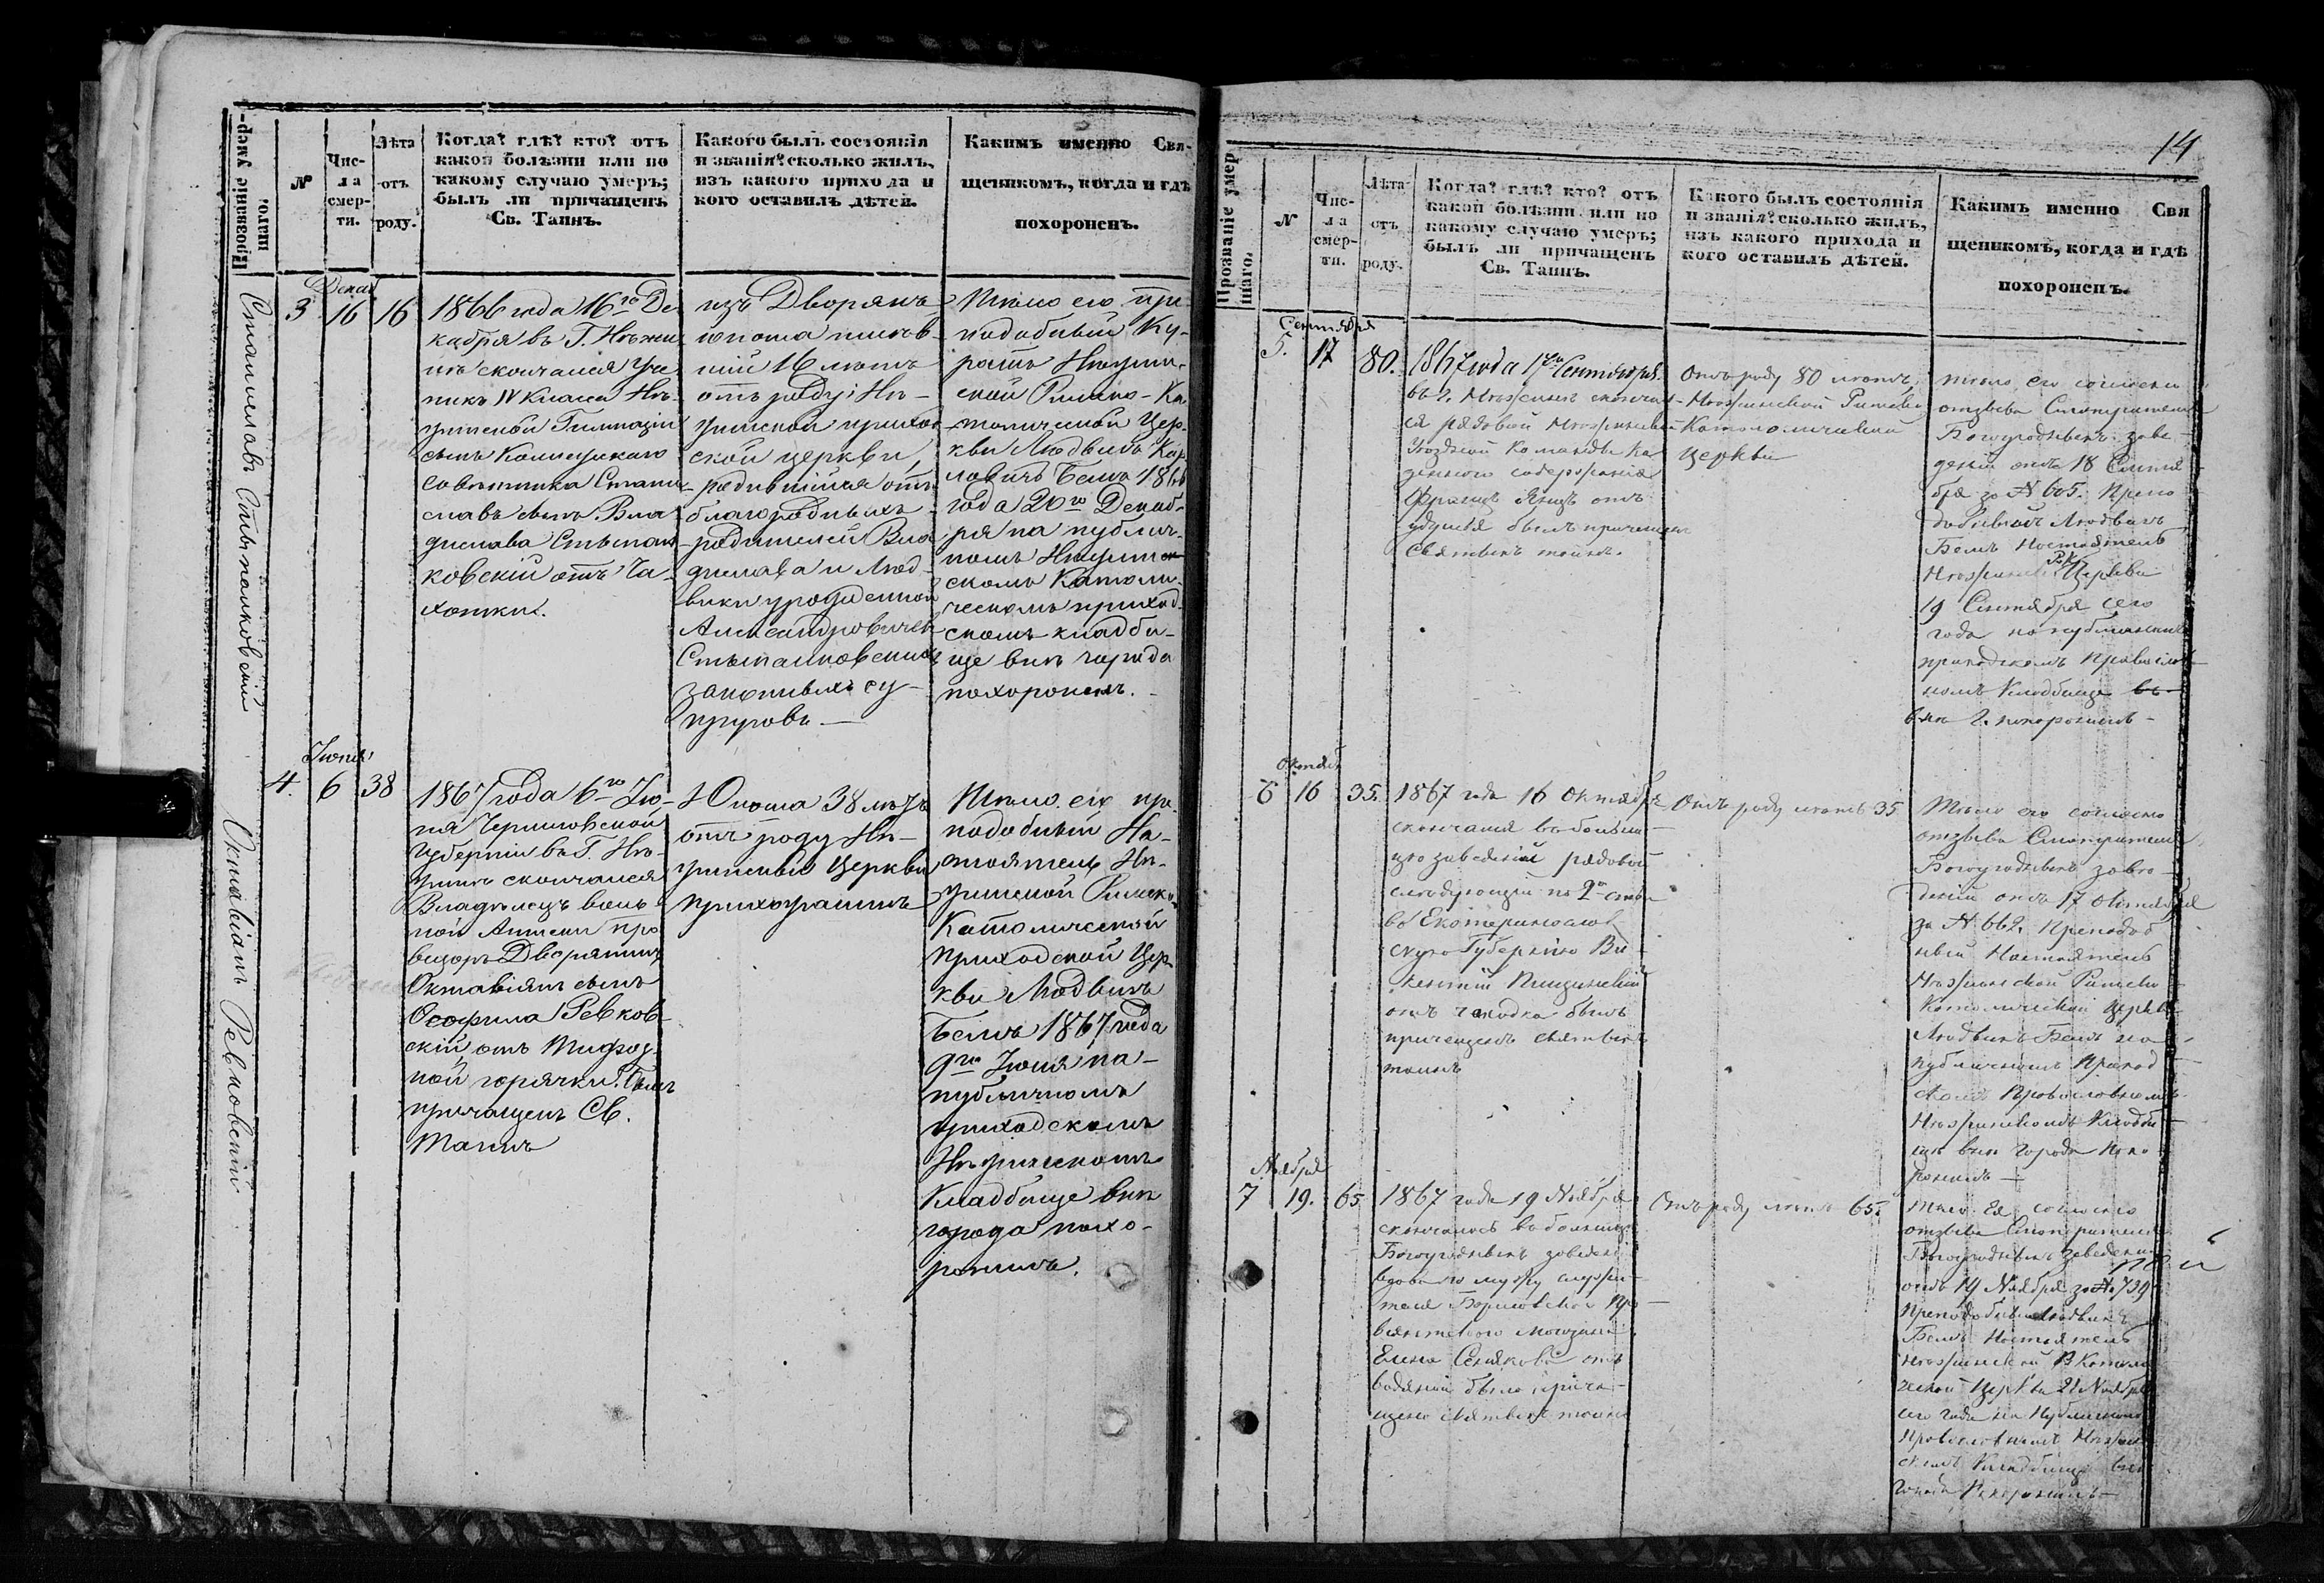 Прозваніе умер-
шаго.
№
Чис-
ла
смер-
ти.
Лѣта
отъ
роду.
Когда? гдѣ? кто? отъ
какой болѣзни или по
какому случаю умеръ;
былъ ли причащенъ
Св. Таинъ.
Какого былъ состоянія
и званія? сколько жилъ,
изъ какого прихода и
кого оставилъ дѣтей.
Какимъ именно Свя-
щенникомъ, когда и гдѣ
похороненъ.
Станиславъ Стѣпалковскій
Декаб
3 16 16
1866 года 16го Де
кабря въ Г. Нѣжи
нѣ скончался Уче
никъ IV Класса Нѣ-
жинской Гимназіи
сынъ Коллежскаго
Совѣтника Стани
славъ сынъ Вла
дислава Стѣпал
ковскій отъ Ча-
хотки.
изъ Дворянъ
юноша имѣв-
шій 16 лѣтъ
отъ роду; Нѣ-
жинской приход
ской церкви,
родившійся отъ
благородныхъ
родителей Вла
дислава и Люд-
вики урожденной
Александровичъ
Стѣпалковскихъ
законныхъ су-
пруговъ —
Тѣло его пре
подобный Ку-
ратъ Нѣжин-
ской Римско-Ка
толической Цер-
кви Людвикъ Кар
ловичъ Белъ 1866
года 20го Декаб-
ря на публич-
номъ Нѣжин
скомъ Католи-
ческомъ приход-
скомъ кладби-
ще внѣ города
похоронилъ.
Октавіанъ Ревковскій
Іюня
4. 6 38
1867 года 6го Ію-
ня Черниговской
Губерніи въ Г. Нѣ-
жинѣ скончался
Владѣлецъ воль
ной Аптеки про
визоръ Дворянинъ
Октавіанъ сынъ
Ѳеофила Ревков-
скій, отъ Тифоз-
ной горячки. Былъ
причащенъ Св.
Таинъ
Юноша 38 лѣтъ
отъ роду Нѣ-
жинской Церкви
прихожанинъ
Тѣло его пре
подобный На-
стоятель Нѣ-
жинской Римско
Католической
приходской Цер
кви Людвикъ
Белъ 1867 года
9го Іюня на-
публичномъ
приходскомъ
Нѣжинскомъ
Кладбище внѣ
города похо-
ронилъ.
14
Прозваніе умер
шаго.
№
Чис-
ла
смер-
ти.
Лѣта
отъ
роду.
Когда? гдѣ? кто? отъ
какой болѣзни или по
какому случаю умеръ;
былъ ли причащенъ
Св. Таинъ.
Какого былъ состоянія
и званія? сколько жилъ,
изъ какого прихода и
кого оставилъ дѣтей.
Каквмъ именно Свя
щенникомъ, когда и гдѣ
похороненъ.
Сентября
5. 17 80.
1867 года 17го Сентября
въ г. Нѣжинѣ скончал-
ся рядовой Нѣжинской
Уѣздной Команды Ка
зеннаго содержанія
Францъ отъ
удушья былъ причащенъ
Святыхъ тайнъ.
Отъ роду 80 лѣтъ,
Нѣжинской Римско
Католической
Церкви
тѣло его согласно
отзыва Смотрителя
Богоугодныхъ заве-
деній отъ 18 Сентя
бря за № 605. Препо
добный Людвикъ
Белъ Настоятель
Нѣжинской Р.К. Церкви
19 Сентября сего
года на публичномъ
приходскомъ Православ
номъ Кладбище
внѣ г. похоронилъ -
Октябр
6 16 35.
1867 года 16 Октября
скончался въ больни-
цѣ заведеній рядовой
слѣдующій по
въ Екатеринослав
скую Губернію Ви
кентій
отъ былъ
причащенъ святыхъ
таинъ
Отъ роду лѣтъ 35
Тѣло его согласно
отзыва Смотрителя
Богоугодныхъ заве-
деній отъ 17 Октября
за № 662. Преподоб
ный Настоятель
Нѣжинской Римско
Католической Церкви
Людвикъ Белъ на
публичномъ Приход
скомъ Православномъ
Нѣжинскомъ Кладби
щѣ внѣ города похо
ронилъ —
Ноября
7 19. 65
1867 года 19 Ноября
скончалась въ больницѣ
Богоугодныхъ заведеній
вдова по мужу служи-
теля Про
віантскаго магазина
Елена отъ
водяной была прича-
щена святыхъ тайнъ
Отъ роду лѣтъ 65.
Тѣло Ея согласно
отзыва Смотрителя
Богоугодныхъ заведеній
отъ 19 Ноября за № 739
Преподобный Людвикъ
Белъ Настоятель
Нѣжинской Р Католи
ческой Церкви 21 Ноября
сего года на Публичномъ
Православномъ Нѣжин
скомъ Кладбище внѣ
города Похоронилъ